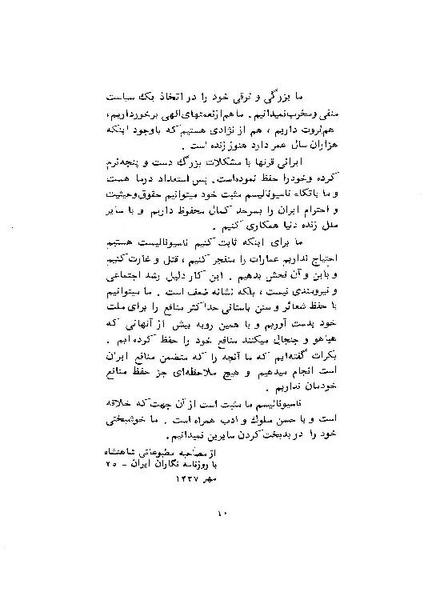 ما بزرگی و ترقی خود را در اتخاذ یک سیاست
منفی و مخرب نمیدانیم . ما هم از نعمتهای الهی برخورداریم ،
هم ثروت داریم ، هم از نژادی هستیم که باوجود اینکه
هزاران سال عمر دارد هنوز زنده است .
ایرانی قرنها با مشکلات بزرگ دست و پنجه نرم
کرده و خود را حفظ نموده است. پس استعداد در ما هست
و ما باتکاء ناسیونالیسم مثبت خود میتوانیم حقوق و حیثیت
و احترام ایران را بسرحد کمال محفوظ داریم و با سایر
ملل زنده دنیا همکاری کنیم .
ما برای اینکه ثابت کنیم ناسیونالیست هستیم
احتیاج نداریم عمارات را منفجر کنیم ، قتل و غارت کنیم
و باین و آن فحش بدهیم . این کار دلیل رشد اجتماعی
و نیرومندی نیست ، بلکه نشانه ضعف است . ما میتوانیم
با حفظ شعائر و سنن باستانی حداکثر منافع را برای ملت
خود بدست آوریم و با همین رویه بیش از آنهائی که
هیاهو و جنجال میکنند منافع خود را حفظ کرده ایم .
بکرات گفته‌ایم که ما آنچه را که متضمن منافع ایران
است انجام میدهیم و هیچ ملاحظه‌ای جز حفظ منافع
خودمان نداریم .
ناسیونالیسم ما مثبت است از آن جهت که خلاقه
است و با حسن سلوک و ادب همراه است . ما خوشبختی
خود را در بدبخت کردن سایرین نمیدانیم.
از مصاحبه مطبوعاتی شاهنشاه
با روزنامه نگاران ایران - ۲۵
مهر ۱۳۳۷
۱۰